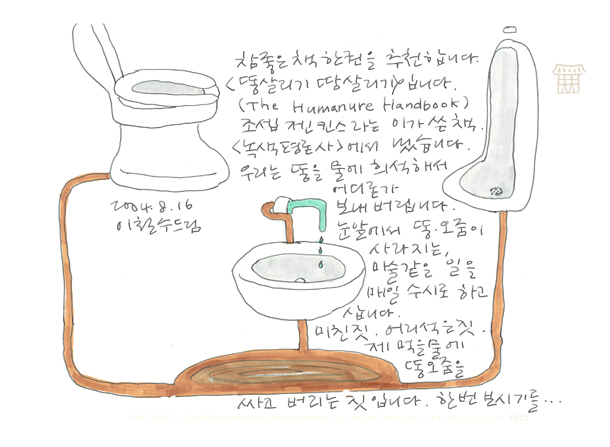 참 좋은 책 한권을 추천합니다.
<똥살리기 땅살리기>입니다.
(The Humanure Handbook)
조셉 젠킨스라는 이가 쓴 책.
<녹색평론사>에서 냈습니다.
우리는 똥을 물에 희석해서
어디론가
보내버립니다.
눈앞에서 똥·오줌이
사라지는,
마술같은 일을
매일 수시로 하고
삽니다.
미친짓. 어리석은짓.
제 먹을물에
똥오줌을
싸고 버리는 짓입니다. 한번 보시기를...
2004.8.16
이철수드림